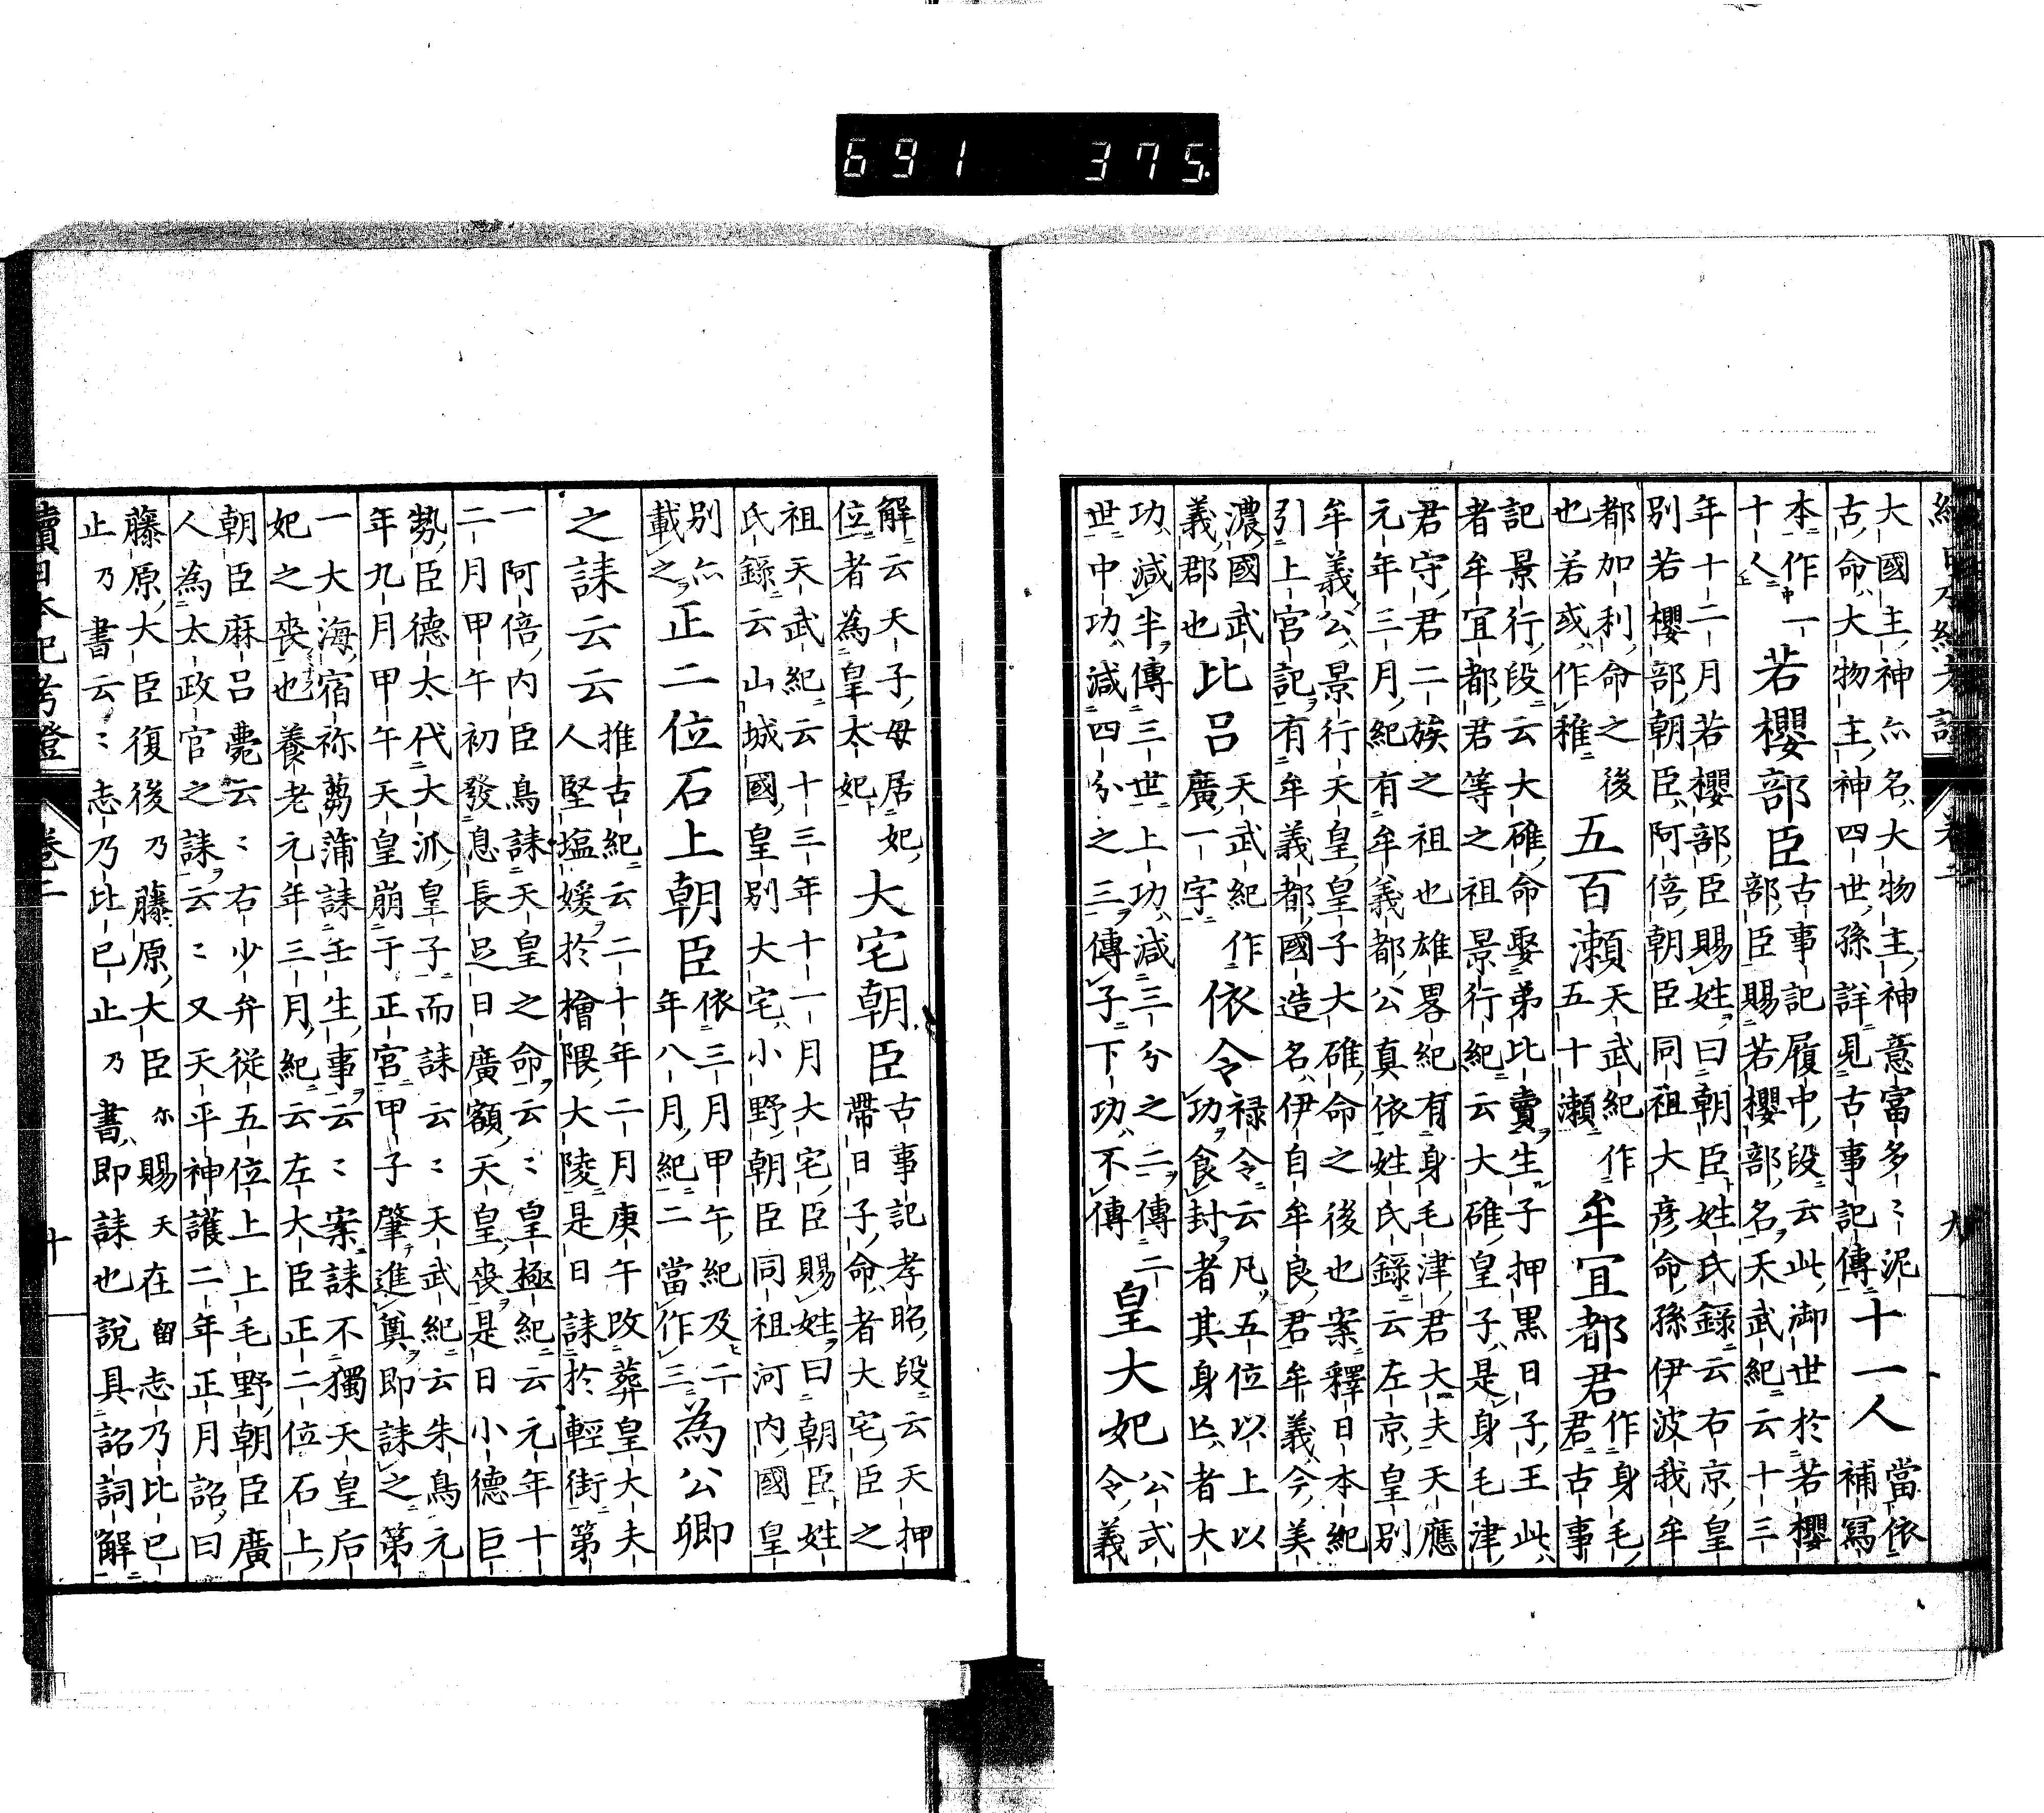 續日本紀考證 卷二 九
大國主神亦名大物主神意富多々泥
古命大物主神四世孫詳見古事記傳
十一人
當依
補寫
本作一
十人
若櫻部臣
古事記履中段云此御世於若櫻
部臣賜若櫻部名天武紀云十三
年十二月若櫻部臣賜姓曰朝臣姓氏錄云右京皇
別若櫻部朝臣阿倍朝臣同祖大彥命孫伊波我牟
都加利命之後
也若或作稚
五百瀨
天武紀作
五十瀨
牟宜都君
作身毛
君古事
記景行段云大碓命娶弟比賣生子押黑日子王此
者牟宜都君等之祖景行紀云大碓皇子是身毛津
君守君二族之祖也雄畧紀有身毛津君大夫天應
元年三月紀有牟義都公真依姓氏錄云左京皇別
牟義公景行天皇皇子大碓命之後也案釋日本紀
引上宮記有牟義都國造名伊自牟良君牟義今美
濃國武
義郡也
比呂
天武紀作
廣一字
依令
祿令云凡五位以上以
功食封者其身亡者大
功減半傳三世上功減三分之二傳二
世中功減四分之三傳子下功不傳
皇大妃
公式
令義
解云天子母居妃
位者為皇太妃
大宅朝臣
古事記孝昭段云天押
帶日子命者大宅臣之
祖天武紀云十三年十一月大宅臣賜姓曰朝臣姓
氏錄云山城國皇別大宅小野朝臣同祖河內國皇
別亦
載之
正二位石上朝臣
依三月甲午紀及二
年八月紀二當作三
為公卿
之誄云云
推古紀云二十年二月庚午改葬皇大夫
人堅塩媛於檜隈大陵是日誄於輕街第
一阿倍內臣鳥誄天皇之命云々皇極紀云元年十
二月甲午初發息長足日廣額天皇喪是日小德巨
勢臣德太代大派皇子而誄云々天武紀云朱鳥元
年九月甲午天皇崩于正宮甲子肇進奠即誄之第
一大海宿祢蒭蒲誄壬生事云々案誄不獨天皇后
妃之喪也養老元年三月紀云左大臣正二位石上
朝臣麻呂薨云々右少弁從五位上上毛野朝臣廣
人為太政官之誄云々又天平神護二年正月詔曰
藤原大臣復後乃藤原大臣尓賜天在留志乃比己
止乃書云々志乃比己止乃書即誄也說具詔詞解
續日本紀考證 卷二 十
691 375